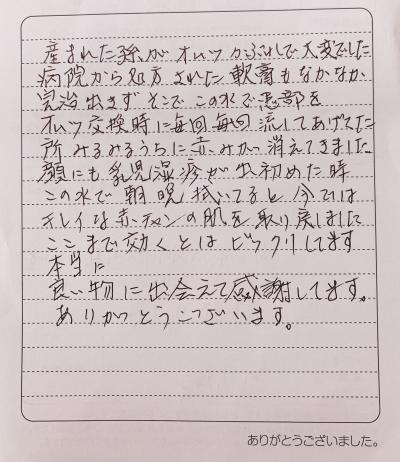 産まれた孫がオムツかぶれして大変でした
病院から処方された軟膏もなかなか
完治出きずそこでこの水で患部を
オムツ交換時に毎回毎回流してあげてた
所みるみるうちに赤みが消えてきました
顔にも乳児湿疹が出初めた時
この水で朝晩拭いてると今では
キレイな赤チャンの肌を取り戻しました
ここまで効くとはビックリしてます
本当に
良い物に出会えて感謝してます。
ありがとうございます。
ありがとうございました。